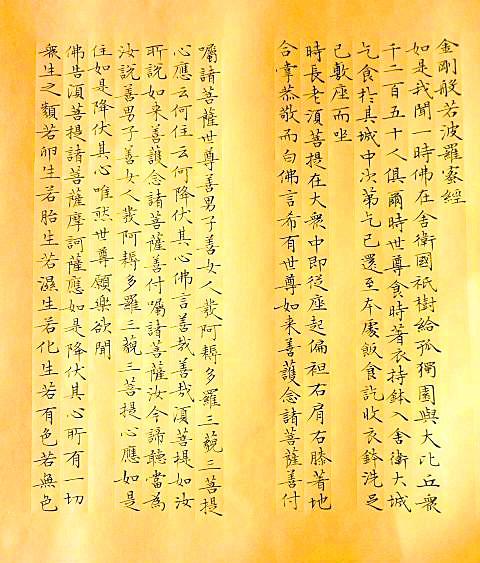 金剛般若波羅蜜經
如是我聞一時佛在舍衛國祇樹給孤獨園與大比丘衆
千二百五十人俱爾時世尊食時著衣持鉢入舍衛大城
乞食於其城中次第乞已還至本處飯食訖收衣鉢洗足
已敷座而坐
時長老須菩提在大衆中即從座起偏袒右肩右膝著地
合掌恭敬而白佛言希有世尊如来善護念諸菩薩善付
囑諸菩薩世尊善男子善女人發阿耨多羅三藐三菩提
心應云何住云何降伏其心佛言善哉善哉須菩提如汝
所說如来善護念諸菩薩善付囑諸菩薩汝今諦聽當為
汝說善男子善女人發阿耨多羅三藐三菩提心應如是
住如是降伏其心唯然世尊願樂欲聞
佛告須菩提諸菩薩摩訶薩應如是降伏其心所有一切
衆生之類若卵生若胎生若濕生若化生若有色若無色